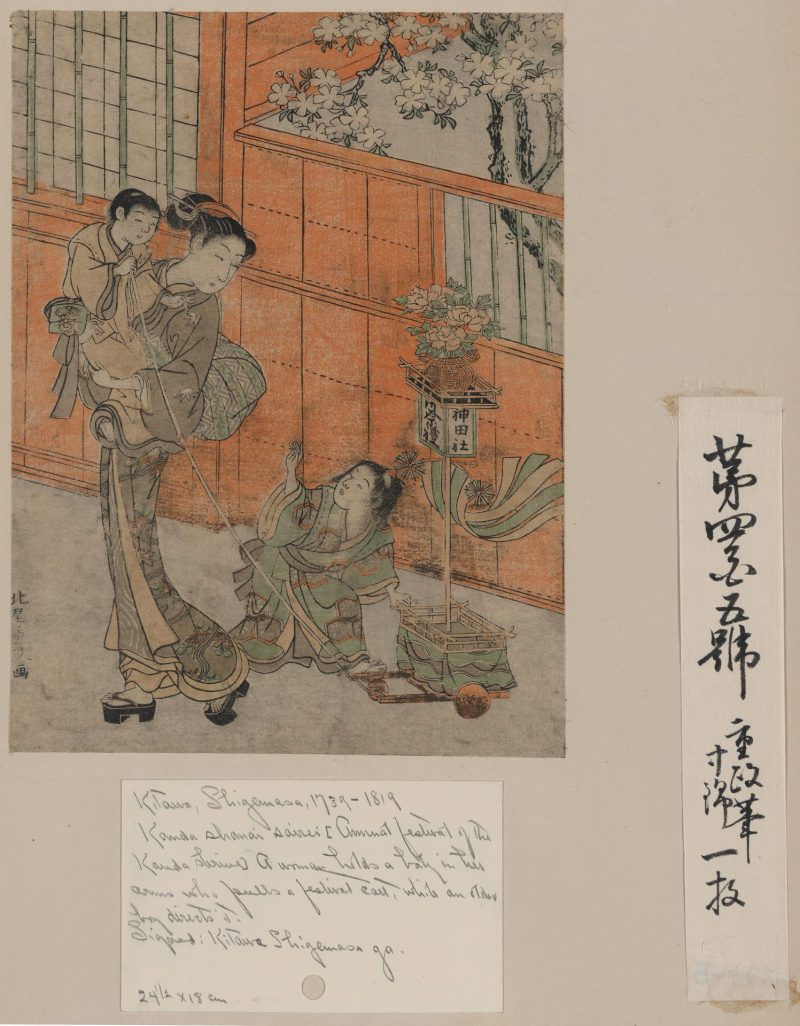 神田社
御祭禮
北尾重政画
Kitawo, Shigemasa, 1739-1819
Kanda shanai sairei [Annual festival of the
Kanda Shrine] A woman holds a baby in her
arms who pulls a festival cart, while an older
boy directs it.
Signed: Kitawo Shigemasa ga.
24 1/2 x 18 cm
第四百五號
重政筆
一枚